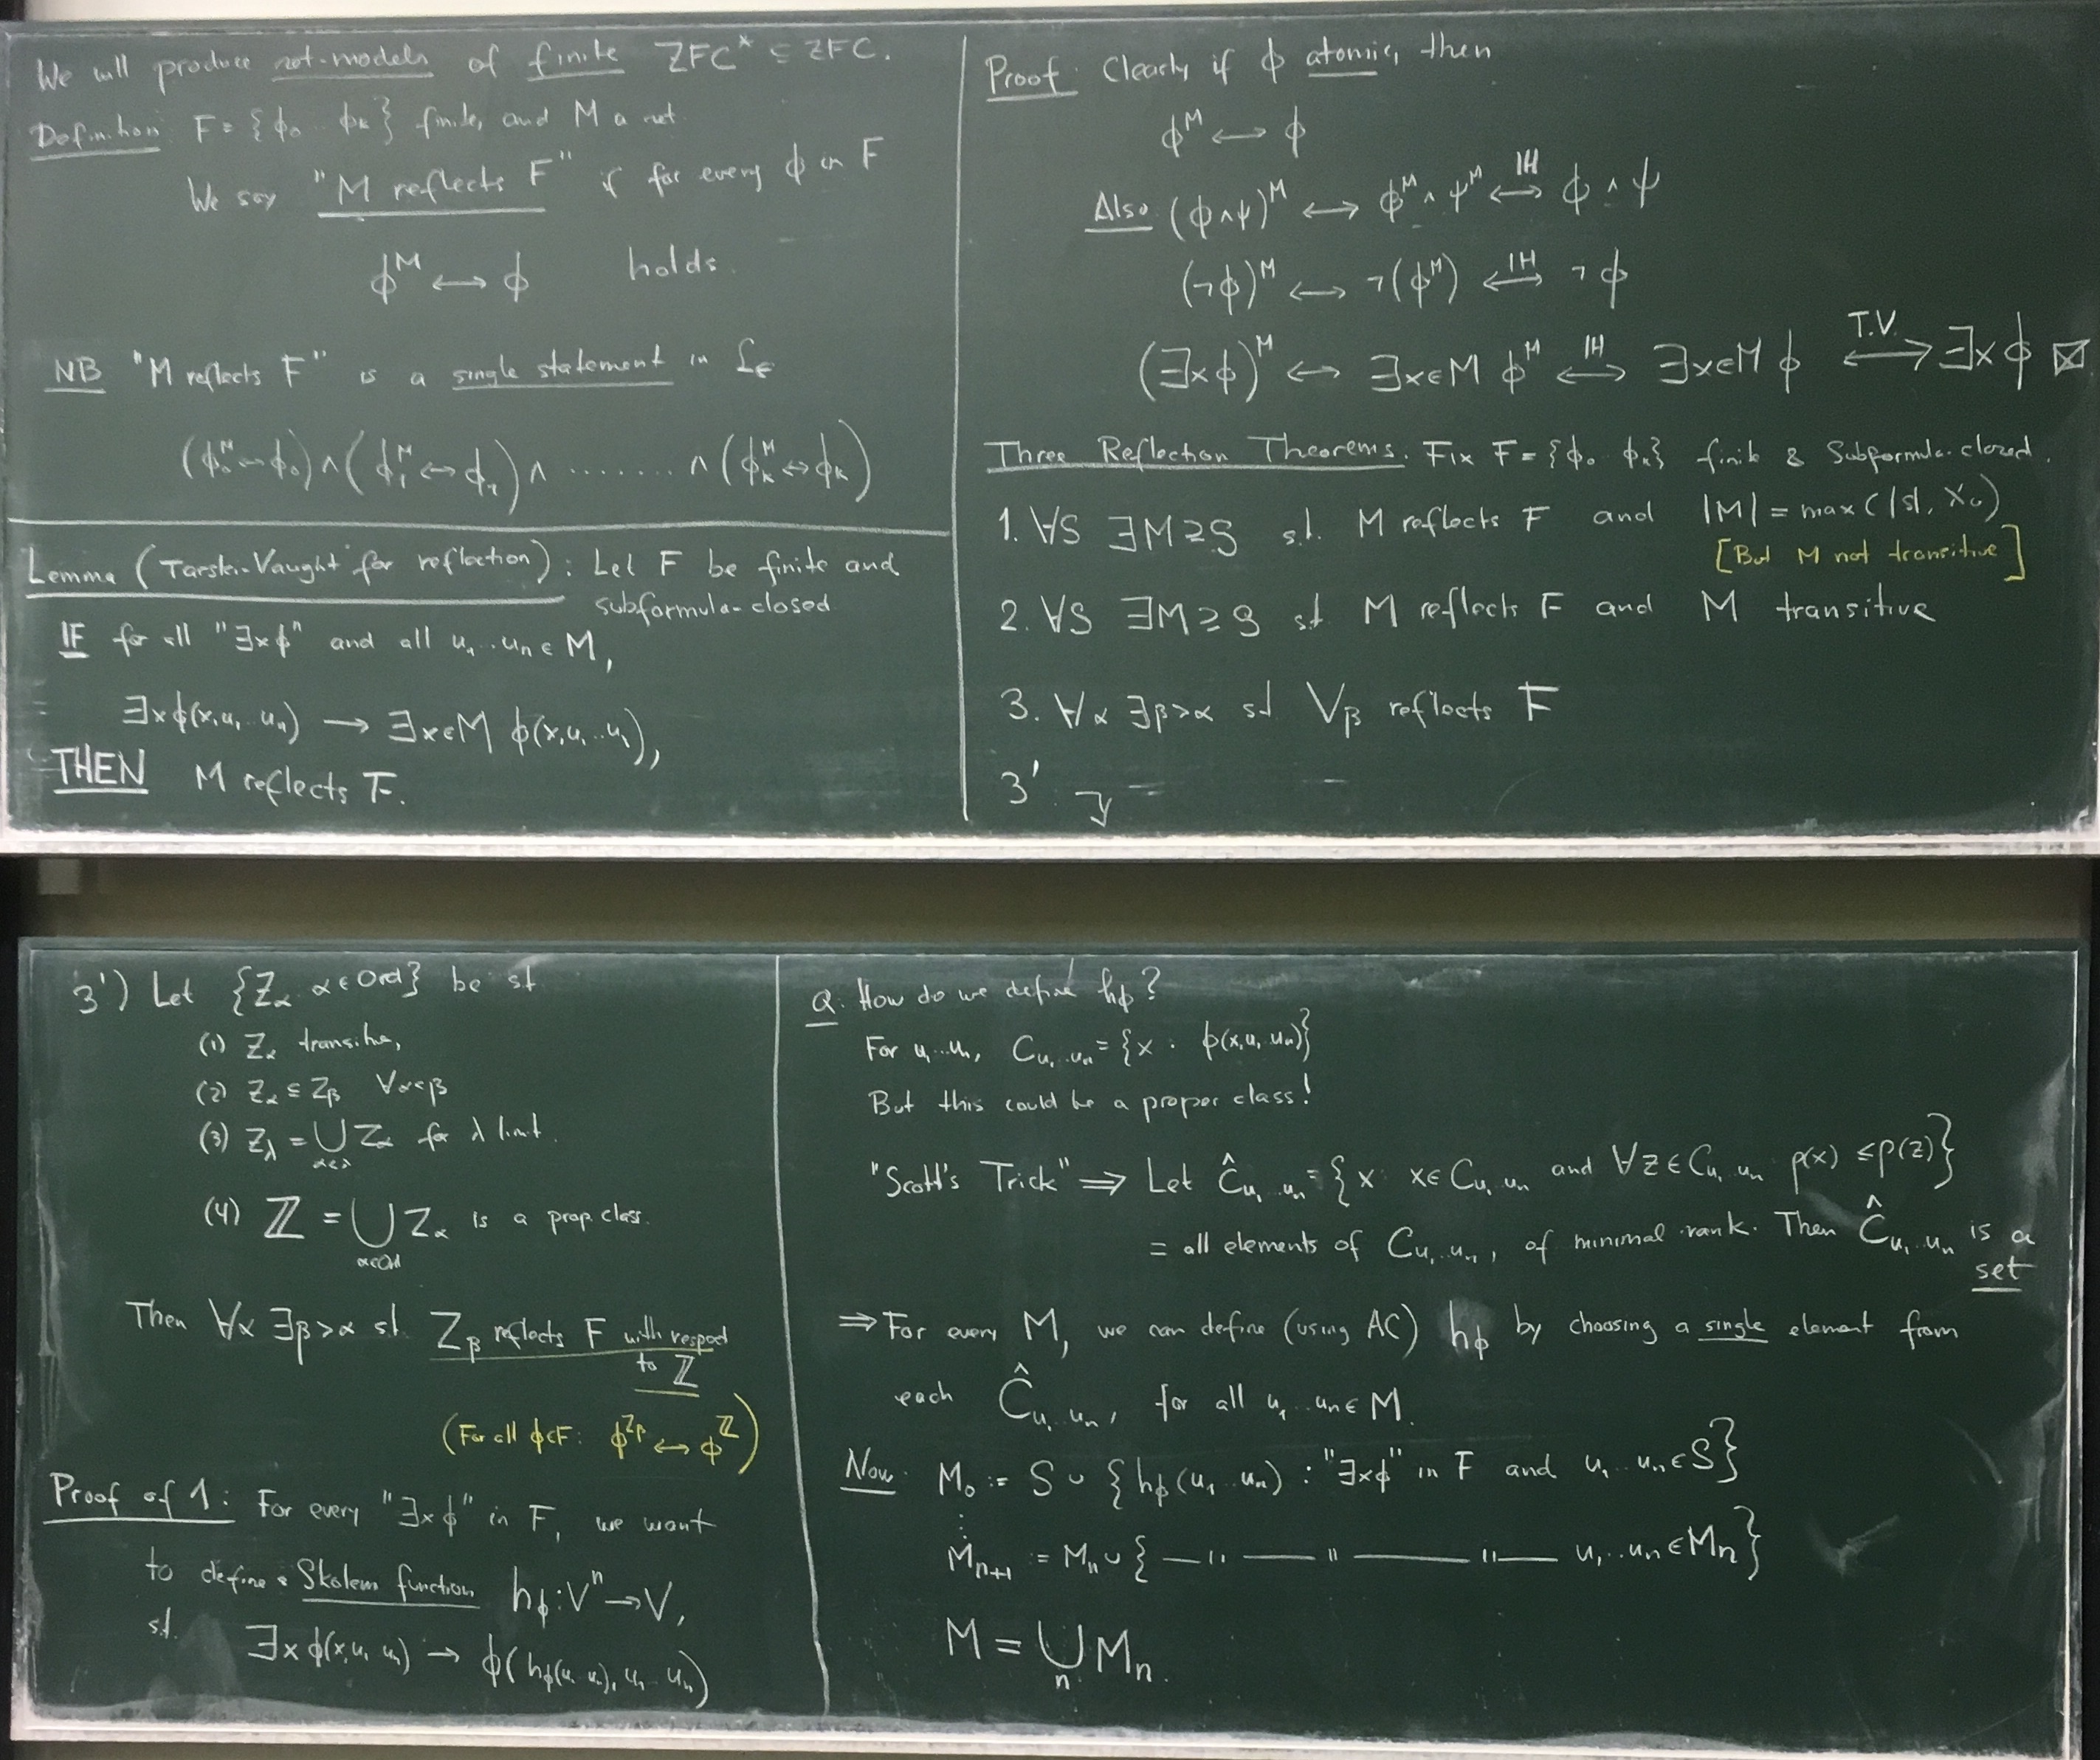 We will produce set-models of finite ZFC* ⊆ ZFC.
Definition: F = {ϕ₀ .. ϕₖ} finite, and M a set.
We say "M reflects F" if for every ϕ in F
ϕᴹ ↔ ϕ holds.
NB "M reflects F" is a single statement in L_∈
(ϕ₀ᴹ ↔ ϕ₀) ∧ (ϕ₁ᴹ ↔ ϕ₁) ∧ ........ ∧ (ϕₖᴹ ↔ ϕₖ)
Lemma (Tarski-Vaught for reflection): Let F be finite and
subformula-closed
IF for all "∃xϕ" and all u₁..uₙ ∈ M,
∃xϕ(x,u₁..uₙ) → ∃x∈M ϕ(x,u₁..uₙ),
THEN M reflects F.
Proof: Clearly if ϕ atomic, then
ϕᴹ ↔ ϕ
Also (ϕ∧ψ)ᴹ ↔ ϕᴹ ∧ ψᴹ ⟷^{IH} ϕ ∧ ψ
(¬ϕ)ᴹ ↔ ¬(ϕᴹ) ⟷^{IH} ¬ϕ
(∃xϕ)ᴹ ↔ ∃x∈M ϕᴹ ⟷^{IH} ∃x∈M ϕ ⟷^{T.V.} ∃xϕ ⊠
Three Reflection Theorems. Fix F = {ϕ₀ ϕₖ} finite & Subformula-closed.
1. ∀S ∃M⊇S s.t. M reflects F and |M| = max(|S|, ℵ₀)
[But M not transitive]
2. ∀S ∃M⊇S st M reflects F and M transitive
3. ∀α ∃β>α st V_β reflects F
3'.
3') Let {Z_α α∈Ord} be st
(1) Z_α transitive,
(2) Z_α ⊆ Z_β ∀α<β
(3) Z_λ = ⋃_{α<λ} Z_α for λ limit.
(4) ℤ = ⋃_{α∈Ord} Z_α is a prop. class.
Then ∀α ∃β>α st. Z_β reflects F with respect
to ℤ
(For all ϕ∈F: ϕ^{Z_β} ↔ ϕ^ℤ)
Proof of 1: For every "∃xϕ" in F, we want
to define a Skolem function h_ϕ: Vⁿ → V,
s.t. ∃xϕ(x,u₁ uₙ) → ϕ(h_ϕ(u₁ uₙ), u₁..uₙ)
Q: How do we define h_ϕ?
For u₁...uₙ, C_{u₁..uₙ} = {x : ϕ(x,u₁ uₙ)}
But this could be a proper class!
"Scott's Trick" ⟹ Let Ĉ_{u₁..uₙ} = {x x∈C_{u₁ uₙ} and ∀z∈C_{u₁ uₙ} ρ(x) ≤ ρ(z)}
= all elements of C_{u₁..uₙ}, of minimal rank. Then Ĉ_{u₁..uₙ} is a
set
⟹ For every M, we can define (using AC) h_ϕ by choosing a single element from
each Ĉ_{u₁ uₙ}, for all u₁..uₙ∈M.
Now: M₀ := S ∪ {h_ϕ(u₁..uₙ) : "∃xϕ" in F and u₁..uₙ∈S}
⋮
M_{n+1} := Mₙ ∪ {—"——"———"—— u₁..uₙ∈Mₙ}
M = ⋃_n Mₙ.